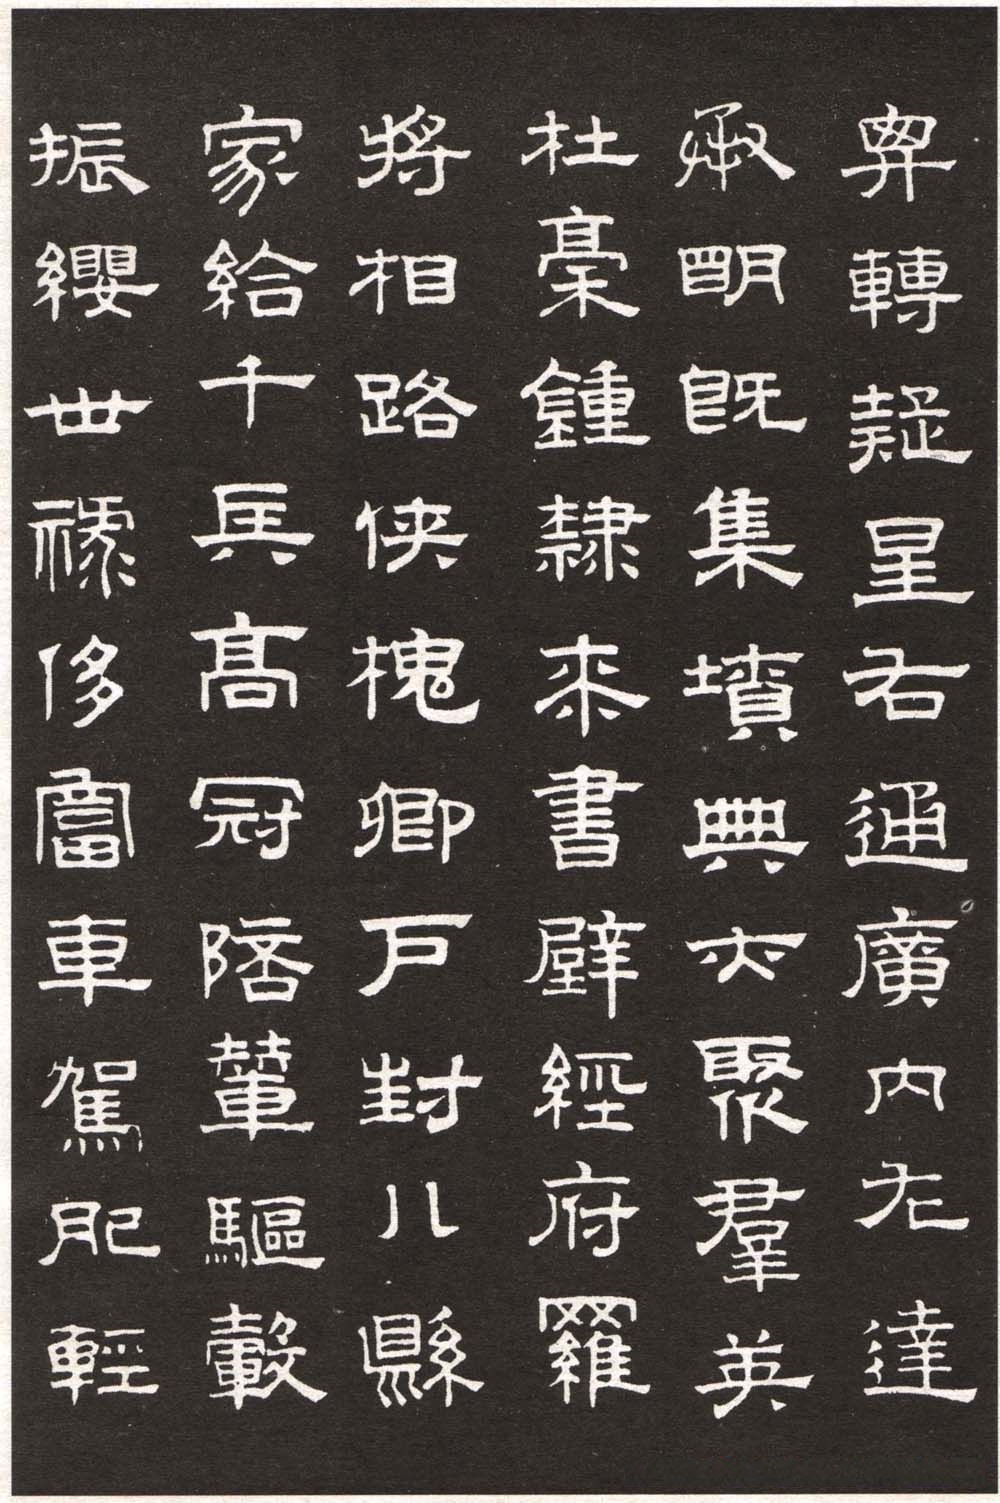 弁轉疑星右通廣內左達
承明既集墳典亦聚羣英
杜稾鍾隸柒書壁經府羅
將相路俠槐卿戶封八縣
家給千兵高冠陪輦驅轂
振纓世祿侈富車駕肥輕